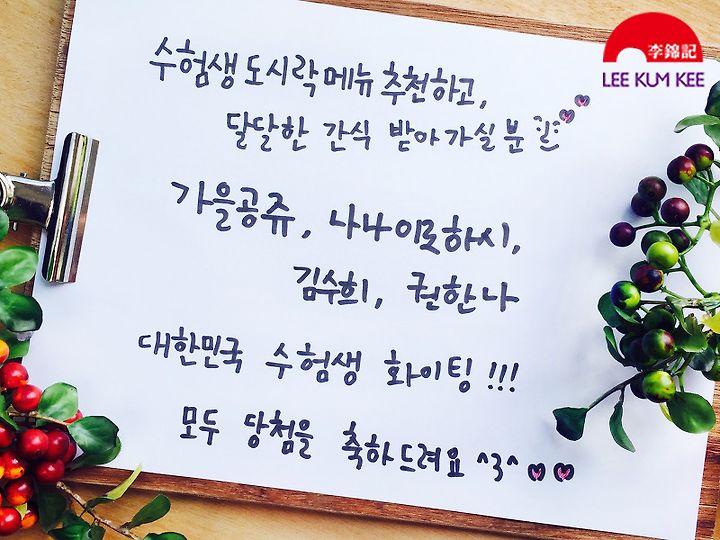 李錦記
LEE KUM KEE
수험생 도시락 메뉴 추천하고,
달달한 간식 받아가실 분
가을공쥬, 나나이로하시,
김수희, 권한나
대한민국 수험생 화이팅!!!
모두 당첨을 축하드려요 ^3^